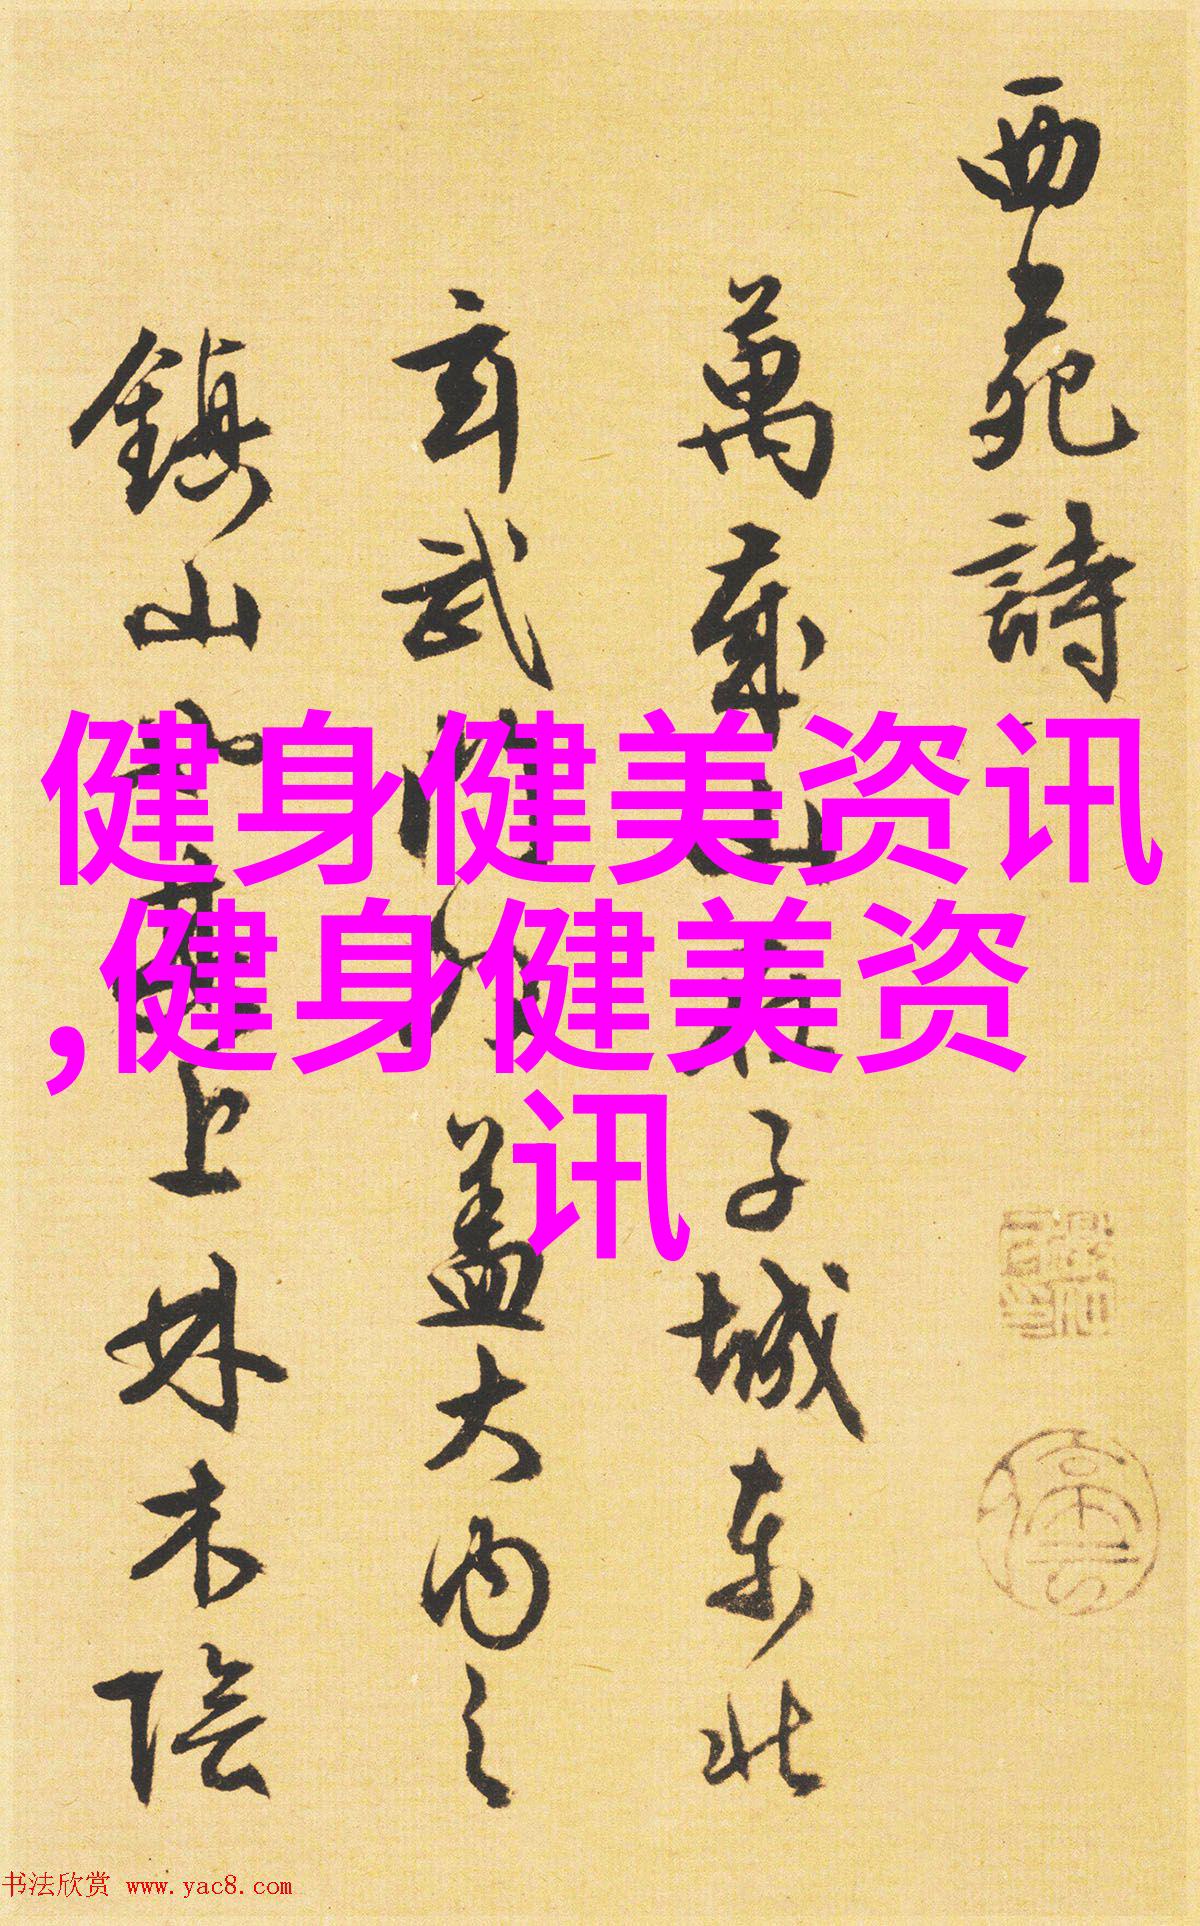 西苑詩
萬歲山在子城東北
玄武門外盖大内之
鎮山也其上林木陰
健身健美资讯
,健身健美资
讯
书法欣赏 www.yac8.com